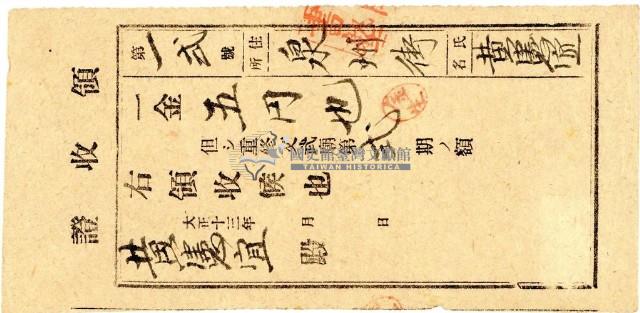 領收證
第一弍號
住所 泉州街
氏名 黃憲宜
一金五円也
但シ重修文武廟第弍期ノ額
右領收候也
大正十三年 月 日
黃憲宜 殿
國史館臺灣文獻館
TAIWAN HISTORICA